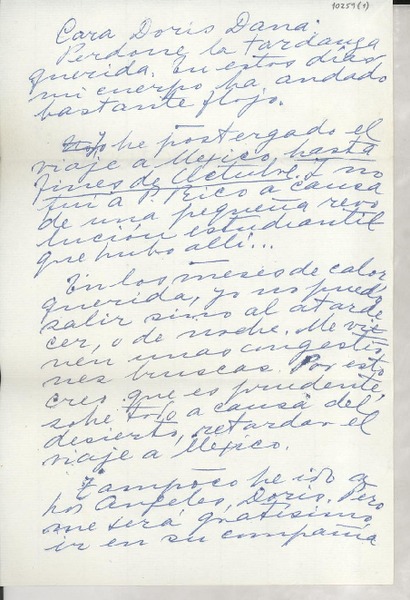 10259(1)
Cara Doris Dana:
Perdone la tardanza
querida. En estos días
mi cuerpo ha andado
bastante flojo.
Yo he postergado el
viaje a Mexico hasta
fines de Octubre. Y no
fui a P. Rico a causa
de una pequeña revo
lución estudiantil
que hubo allí...
En los meses de calor
querida, yo no puedo
salir sino al atarde
cer, o de noche. Me vie
nen unas congestio
nes bruscas. Por esto
creo que es prudente,
sobre todo a causa del
desierto, retardar el
viaje a Mexico.
Tampoco he ido a
Los Angeles, Doris. Pero
me será gratísimo
ir en su compañía